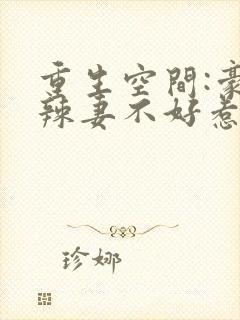 重生空間:豪
辣妻不好惹
珍娜